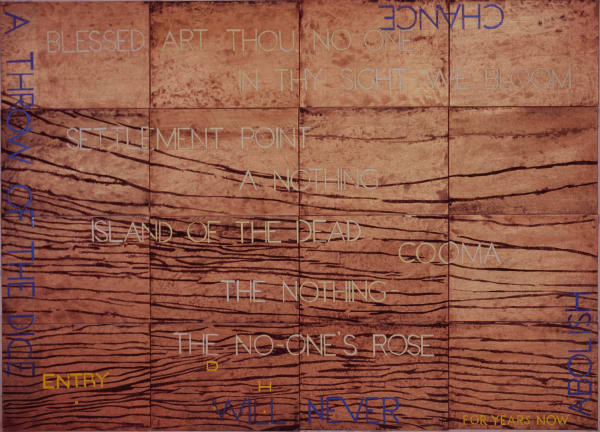 A THROW OF THE DICE
CHANCE
BLESSED ART THOU NO ONE
IN THY SIGHT WE BLOOM
SETTLEMENT POINT
A NOTHING
ISLAND OF THE DEAD
COOMA
THE NOTHING-
THE NO-ONE'S ROSE
D
ENTRY
H
WILL NEVER
ABOLISH
FOR YEARS NOW